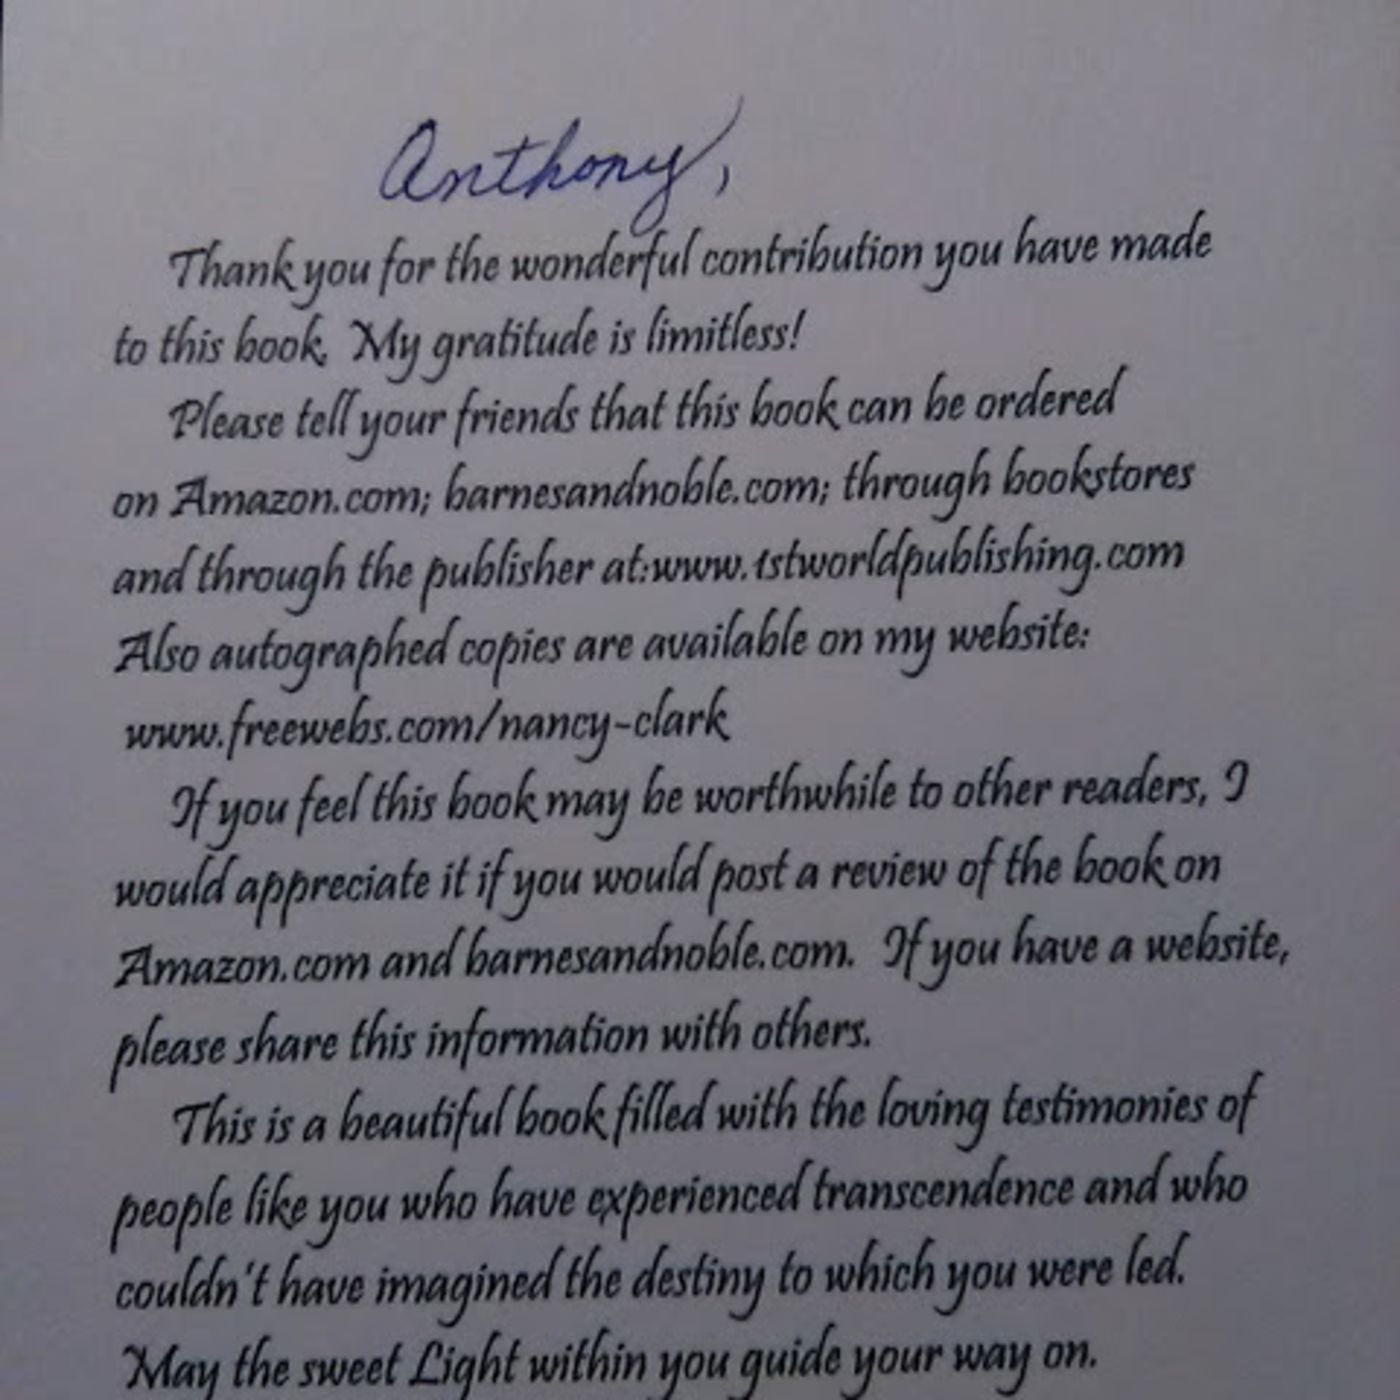 Anthony,
Thank you for the wonderful contribution you have made
to this book. My gratitude is limitless!
Please tell your friends that this book can be ordered
on Amazon.com; barnesandnoble.com; through bookstores
and through the publisher at:www.1stworldpublishing.com
Also autographed copies are available on my website:
www.freewebs.com/nancy-clark
If you feel this book may be worthwhile to other readers, I
would appreciate it if you would post a review of the book on
Amazon.com and barnesandnoble.com. If you have a website,
please share this information with others.
This is a beautiful book filled with the loving testimonies of
people like you who have experienced transcendence and who
couldn't have imagined the destiny to which you were led.
May the sweet Light within you guide your way on.